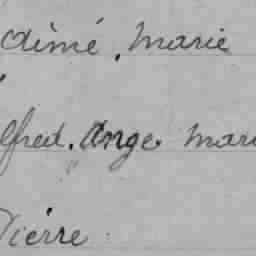 Aimé, Marie
lfred. Ange Mari
Pierre